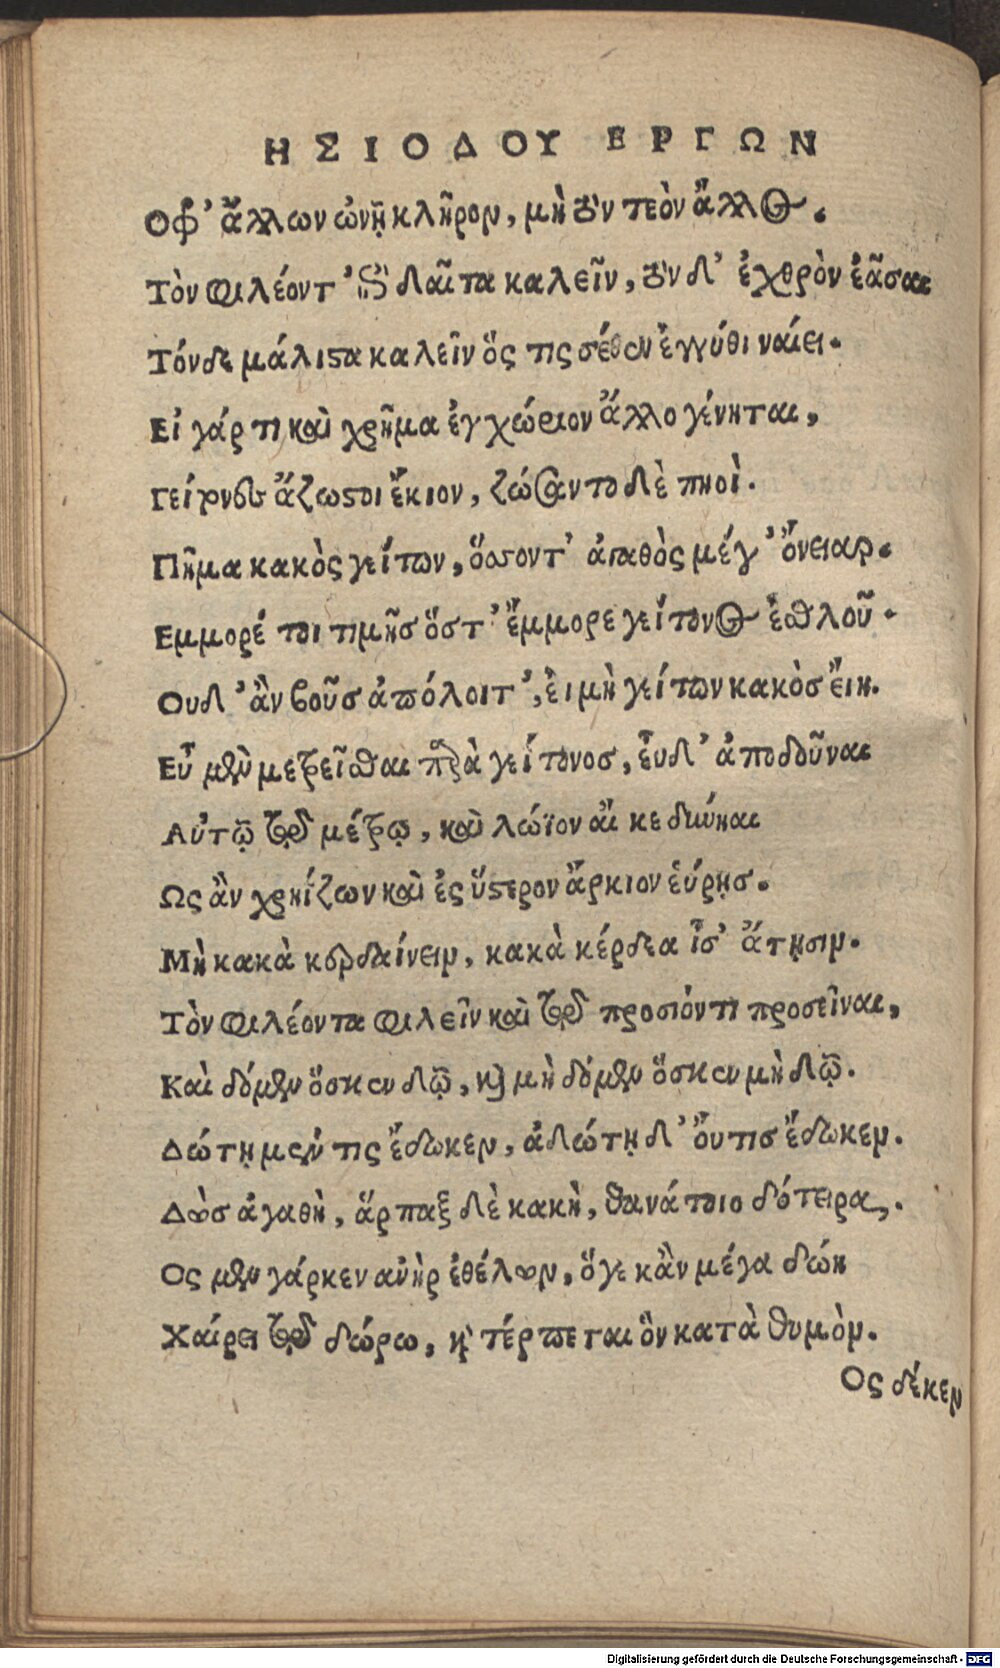 ΗΣΙΟΔΟΥ ΕΡΓΩΝ
Οφρ' ἄλλων ὠνῇ κλῆρον, μὴ τὸν τεὸν ἄλλος.
Τὸν φιλέοντ' ἐπὶ δαῖτα καλεῖν, τὸν δ' ἐχθρὸν ἐᾶσαι
Τόνδε μάλιστα καλεῖν ὅς τις σέθεν ἐγγύθι ναίει.
Εἰ γάρ τι καὶ χρῆμα ἐγχώριον ἄλλο γένηται,
Γείτονες ἄζωστοι ἔκιον, ζώσαντο δὲ πηοὶ.
Πῆμα κακὸς γείτων, ὅσσον τ' ἀγαθὸς μέγ' ὄνειαρ.
Εμμορέ τοι τιμῆσ ὅστ' ἔμμορε γείτονος ἐσθλοῦ.
Ουδ' ἂν βοῦσ ἀπόλοιτ', ἐι μὴ γείτων κακὸσ ἔιη.
Εὖ μὲν μετρεῖσθαι παρὰ γείτονοσ, ἒυδ' ἀποδοῦναι
Αὐτῷ τῷ μέτρῳ, καὶ λώϊον ἄι κε δύνηαι
Ως ἂν χρηίζων καὶ ἐς ὕστερον ἄρκιον ἑύρῃσ.
Μὴ κακὰ κερδαίνειν, κακὰ κέρδεα ἶσ' ἄτῃσιν.
Τὸν φιλέοντα φιλεῖν καὶ τῷ προσιόντι προσεῖναι,
Καὶ δόμεν ὅσκεν δῷ, καὶ μὴ δόμεν ὅσκεν μὴ δῷ.
Δώτῃ μέν τις ἔδωκεν, ἀδώτῃ δ' ὄυτισ ἔδωκεν.
Δὼσ ἀγαθὴ, ἅρπαξ δὲ κακὴ, θανάτοιο δότειρα.
Ος μὲν γάρκεν ἀνὴρ ἐθέλων, ὅγε κἂν μέγα δώη
Χαίρει τῷ δώρω, καὶ τέρπεται ὃν κατὰ θυμὸν.
Ος δέκεν
Digitalisierung gefördert durch die Deutsche Forschungsgemeinschaft - DFG